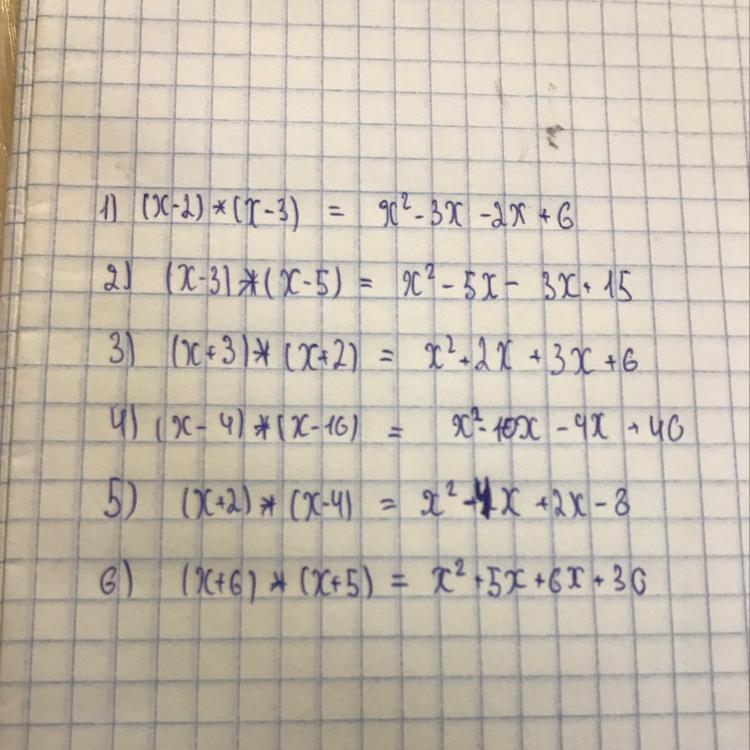 1) (x-2)*(x-3) = x²-3x -2x +6
2) (x-3)*(x-5) = x²-5x- 3x+15
3) (x+3)*(x+2) = x²+2x +3x +6
4) (x-4)*(x-10) = x²-10x -4x +40
5) (x+2)*(x-4) = x²-4x +2x -8
6) (x+6)*(x+5) = x²+5x+6x+30